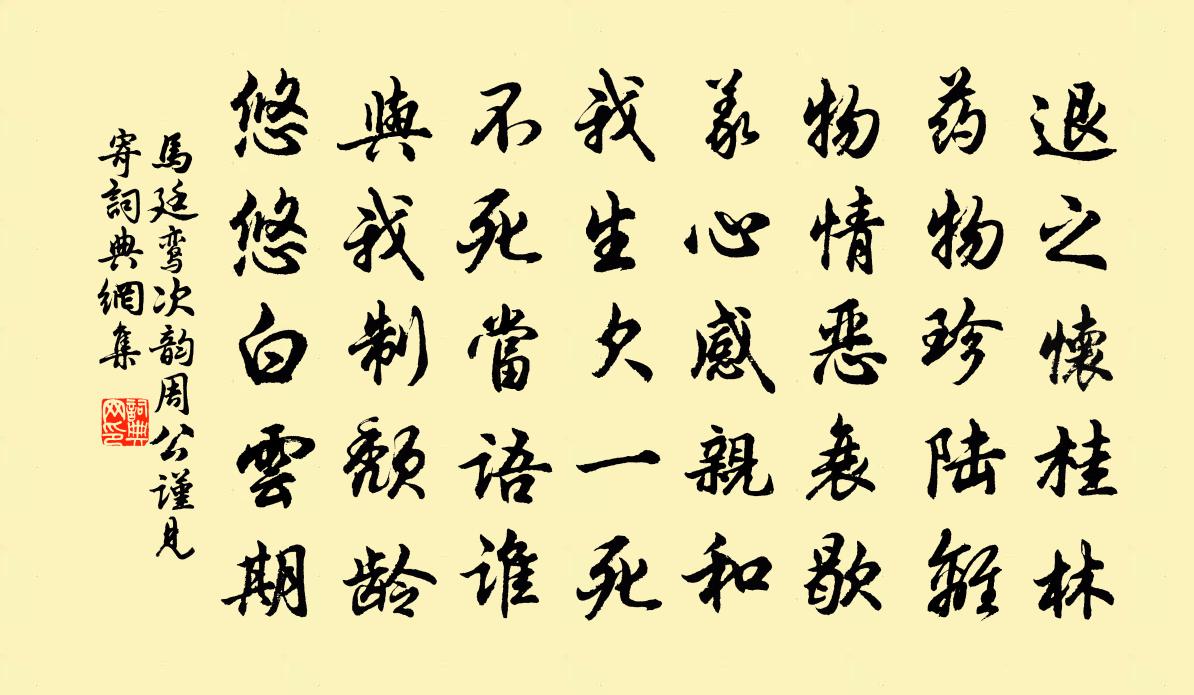 退之懷桂林
药物珍陆離
物情恶衰歇
義心感親和
我生欠一死
不死當語誰
與我制頹龄
悠悠白雲期
馬廷鸾次韵周公謹見
寄詞典網集
詞典
网印